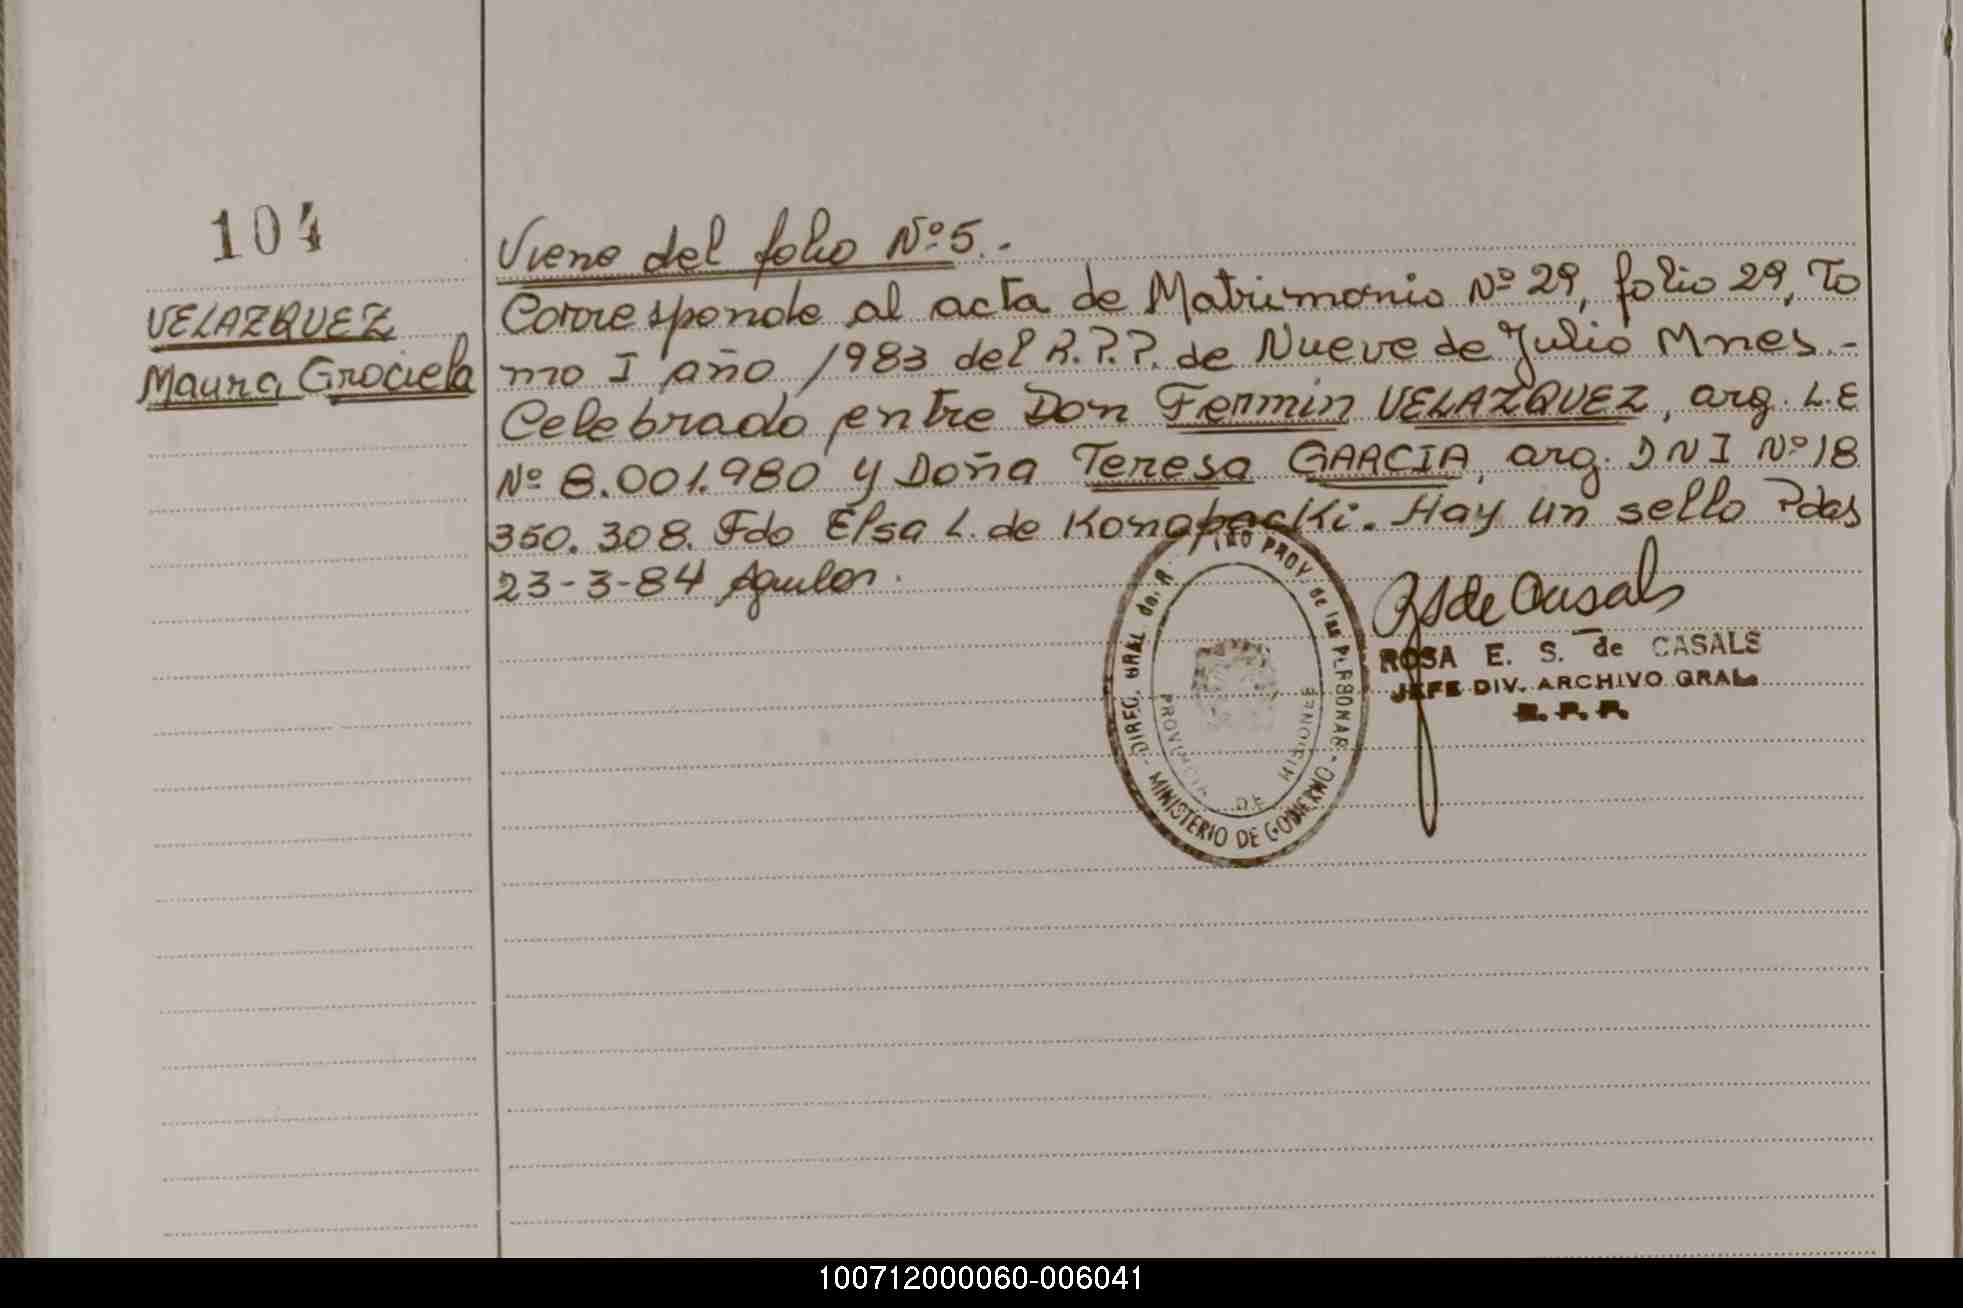 104
VELAZQUEZ
Maura Graciela
Viene del folio Nº 5.-
Corresponde al acta de Matrimonio Nº 29, folio 29, To
mo I año 1983 del R.P.P. de Nueve de Julio Mnes.-
Celebrado entre Don Fermin VELAZQUEZ, arg. L.E
Nº 8.001.980 y Doña Teresa GARCIA, arg. DNI Nº 18
350.308. Fdo Elsa L. de Konopacki. Hay un sello Pdas
23-3-84 Aguilar.
RS de Casals
ROSA E. S. de CASALS
JEFE DIV. ARCHIVO GRAL
R. P. P.
DIREC. GRAL. de. R PROV. de las PERSONAS
- MINISTERIO DE GOBIERNO -
PROVINCIA DE MISIONES
100712000060-006041